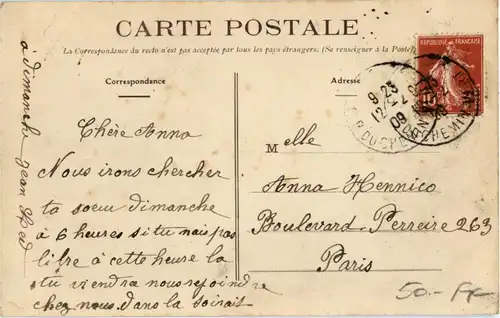 CARTE POSTALE
La Correspondance du recto n'est pas acceptée par tous les pays étrangers. (Se renseigner à la Poste)
Correspondance
Adresse
REPUBLIQUE FRANÇAISE
10
9-25
12
09
à dimanche Jean
Chère Anna
Nous irons chercher
ta soeur dimanche
à 6 heures si tu n'ais pas
libre à cette heure la
tu viendra nous rejoindre
chez nous dans la soirais
Melle
Anna Hennico
Boulevard Perreire 263
Paris
50.- Fr